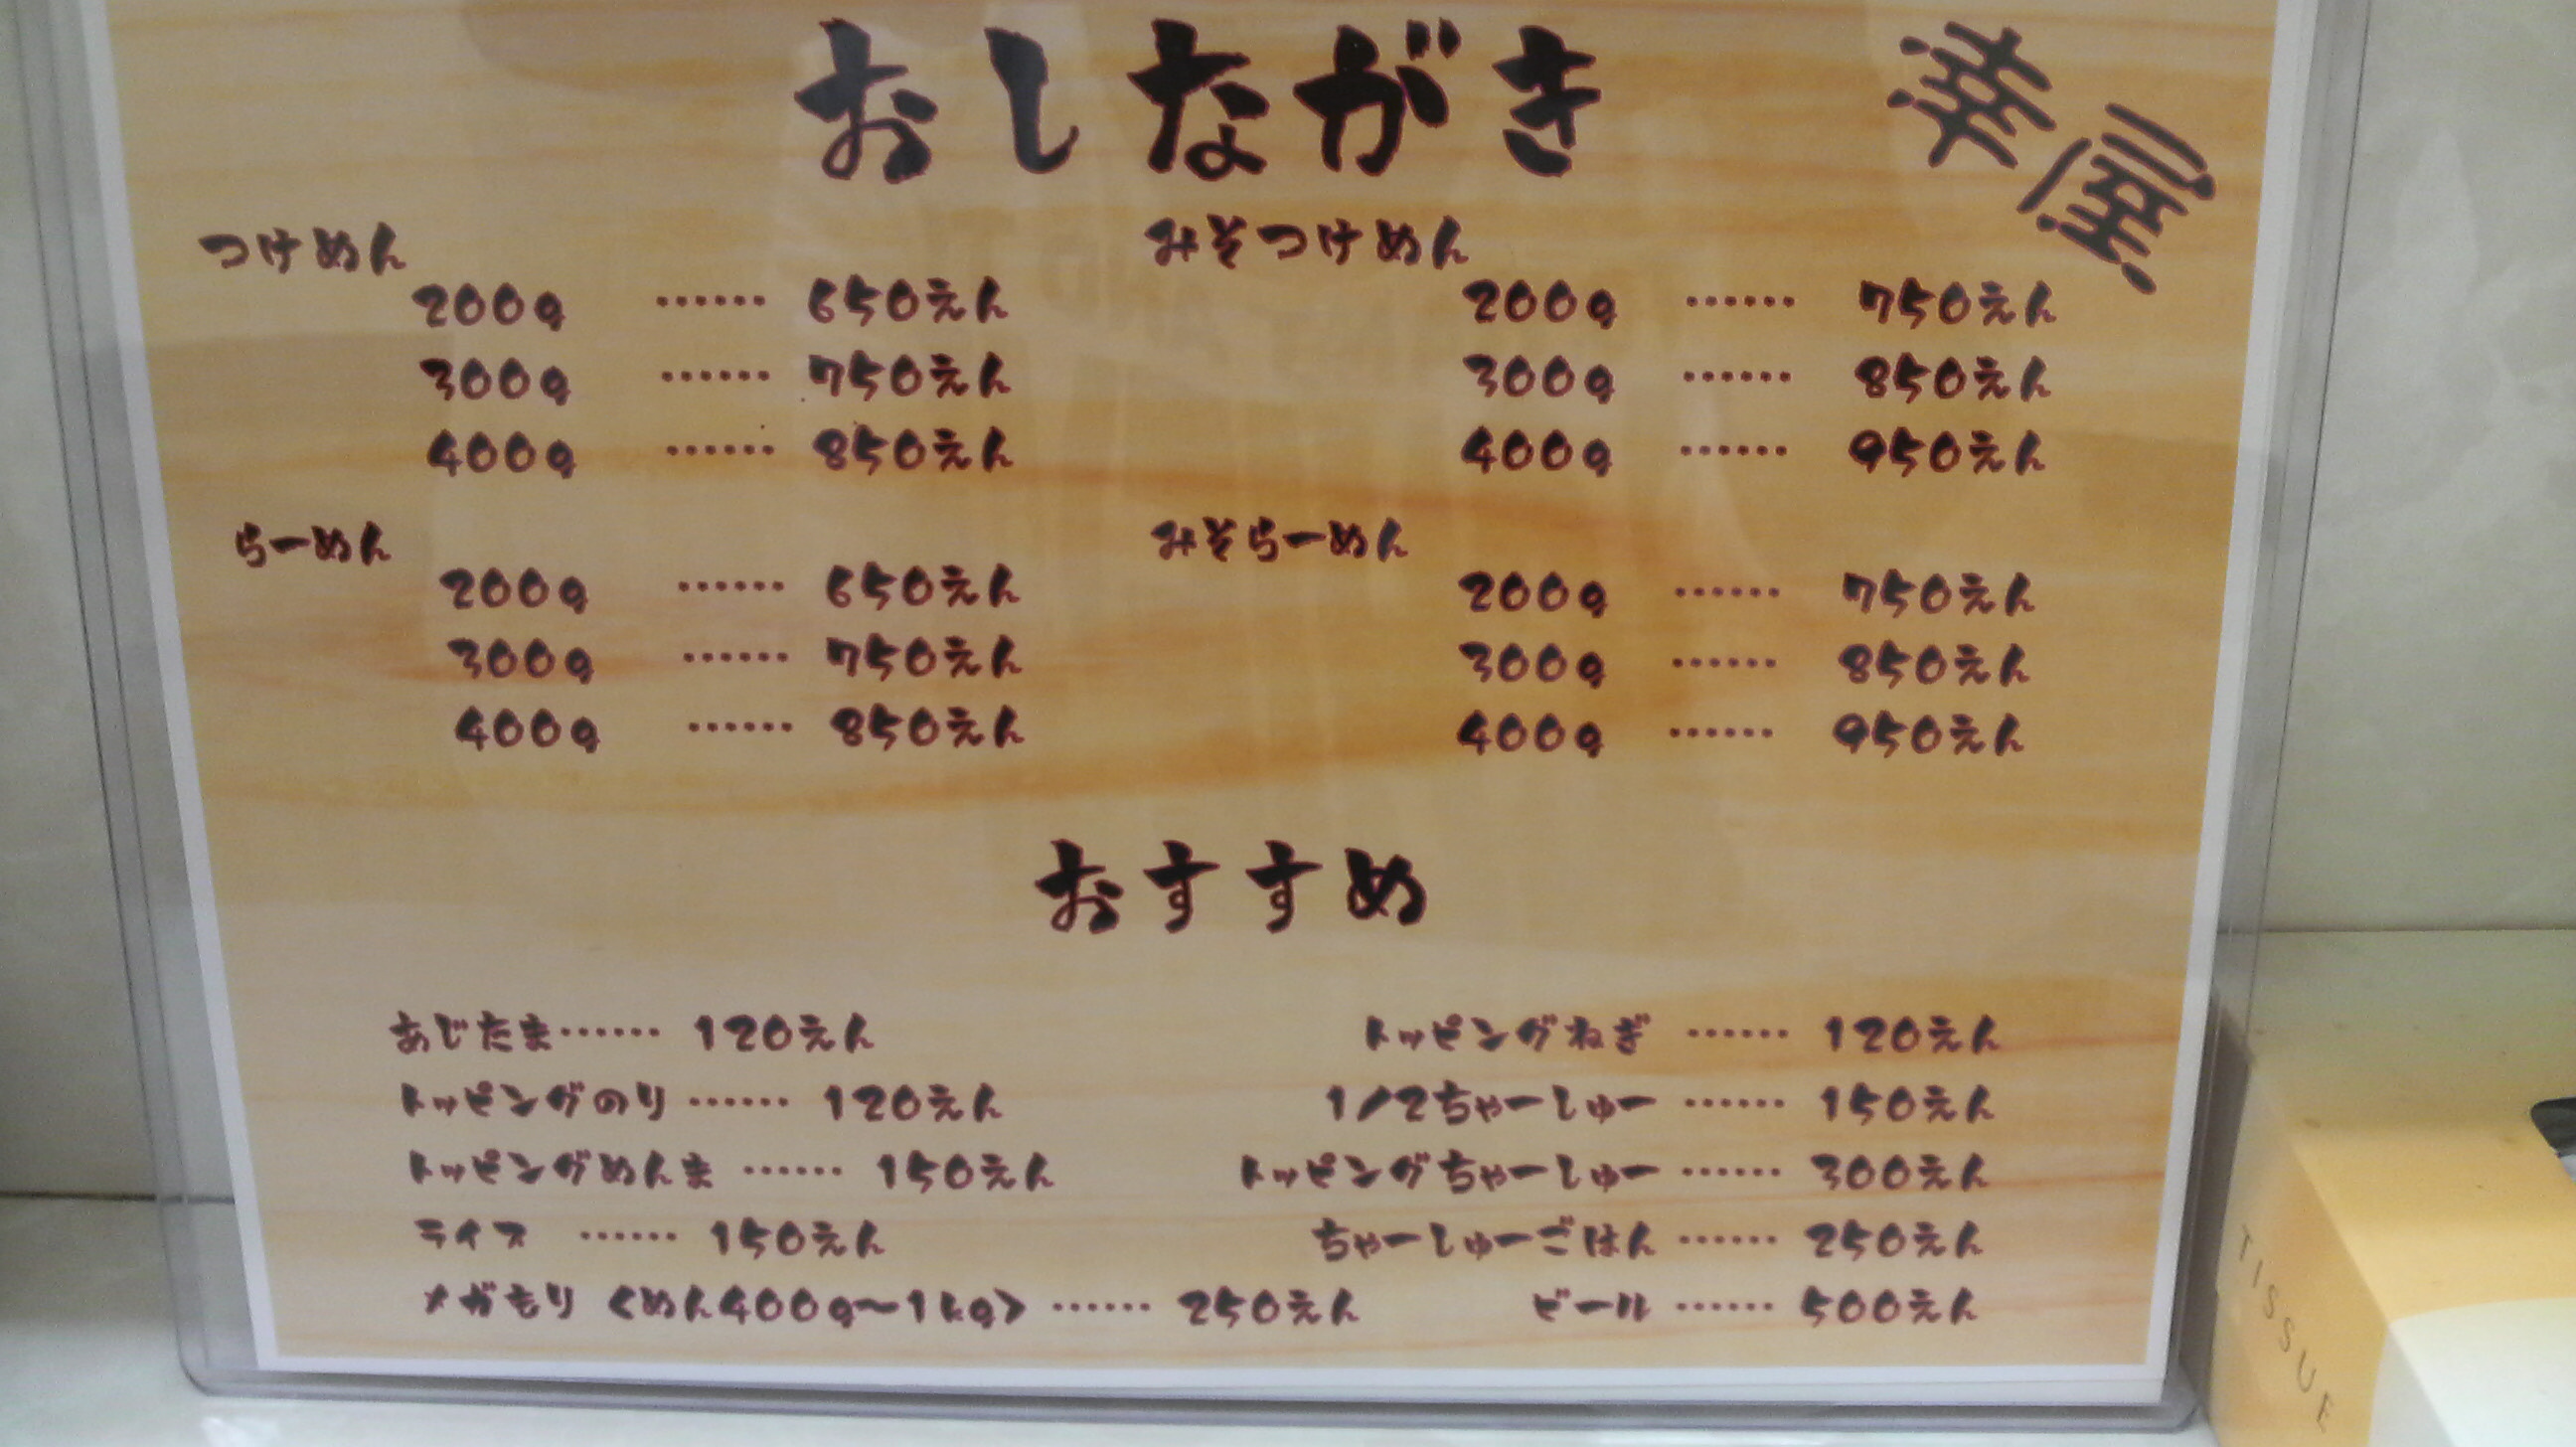 おしながき
幸屋
つけめん
200g …… 650えん
300g …… 750えん
400g …… 850えん
みそつけめん
200g …… 750えん
300g …… 850えん
400g …… 950えん
らーめん
200g …… 650えん
300g …… 750えん
400g …… 850えん
みそらーめん
200g …… 750えん
300g …… 850えん
400g …… 950えん
おすすめ
あじたま…… 120えん
トッピングのり …… 120えん
トッピングめんま …… 150えん
ライス …… 150えん
メガもり <めん400g〜1kg> …… 250えん
トッピングねぎ …… 120えん
1/2ちゃーしゅー …… 150えん
トッピングちゃーしゅー …… 300えん
ちゃーしゅーごはん …… 250えん
ビール …… 500えん
TISSUE